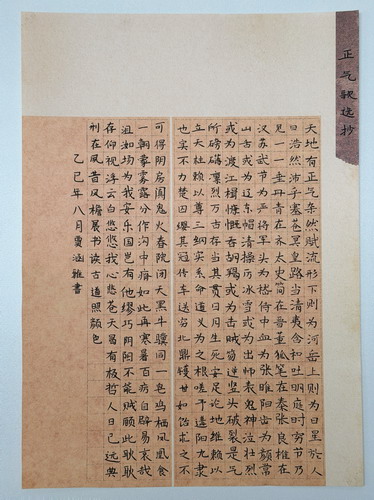 正气歌选抄
天地有正气杂然赋流形下则为河岳上则为日星於人
曰浩然沛乎塞苍冥皇路当清夷含和吐明庭时穷节乃
见一一垂丹青在齐太史简在晋董狐笔在秦张良椎在
汉苏武节为严将军头为嵇侍中血为张睢阳齿为颜常
山舌或为辽东帽清操厉冰雪或为出师表鬼神泣壮烈
或为渡江楫慷慨吞胡羯或为击贼笏逆竖头破裂是气
所磅礴凛烈万古存当其贯日月生死安足论地维赖以
立天柱赖以尊三纲实系命道义为之根嗟予遘阳九隶
也实不力楚囚缨其冠传车送穷北鼎镬甘如饴求之不
可得阴房阗鬼火春院闭天黑牛骥同一皂鸡栖凤凰食
一朝蒙雾露分作沟中瘠如此再寒暑百病自辟易哀哉
沮如场为我安乐国岂有他缪巧阴阳不能贼顾此耿耿
存仰视浮云白悠悠我心悲苍天曷有极哲人日已远典
刑在夙昔风檐展书读古道照颜色
乙巳年八月涵雅書